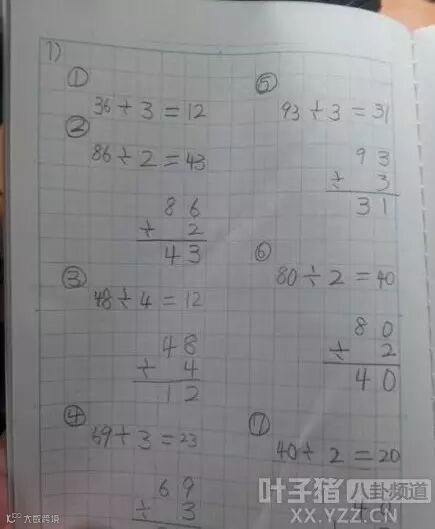 1)
①
36÷3=12
②
86÷2=43
86
÷ 2
43
③
48÷4=12
48
÷ 4
12
④
69÷3=23
69
÷ 3
⑤
93÷3=31
93
÷ 3
31
⑥
80÷2=40
80
÷ 2
40
⑦
40÷2=20
40
叶子猪|八卦频道
XX.YZZ.CN
大数跨境